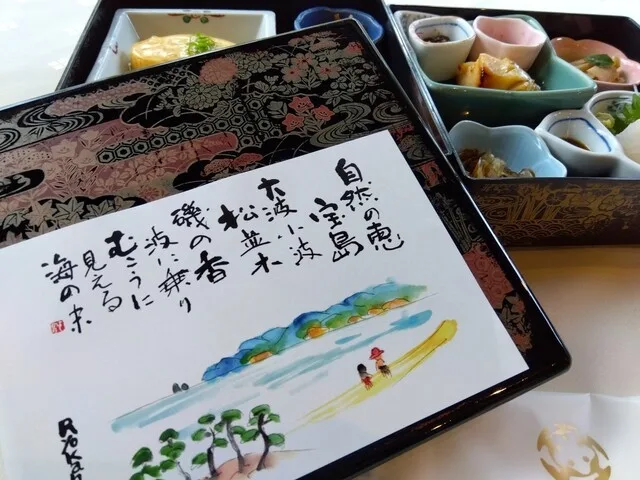 自然の恵
宝島
大波小波
松並木
磯の香
波に乗り
むこうに
見える
海の末